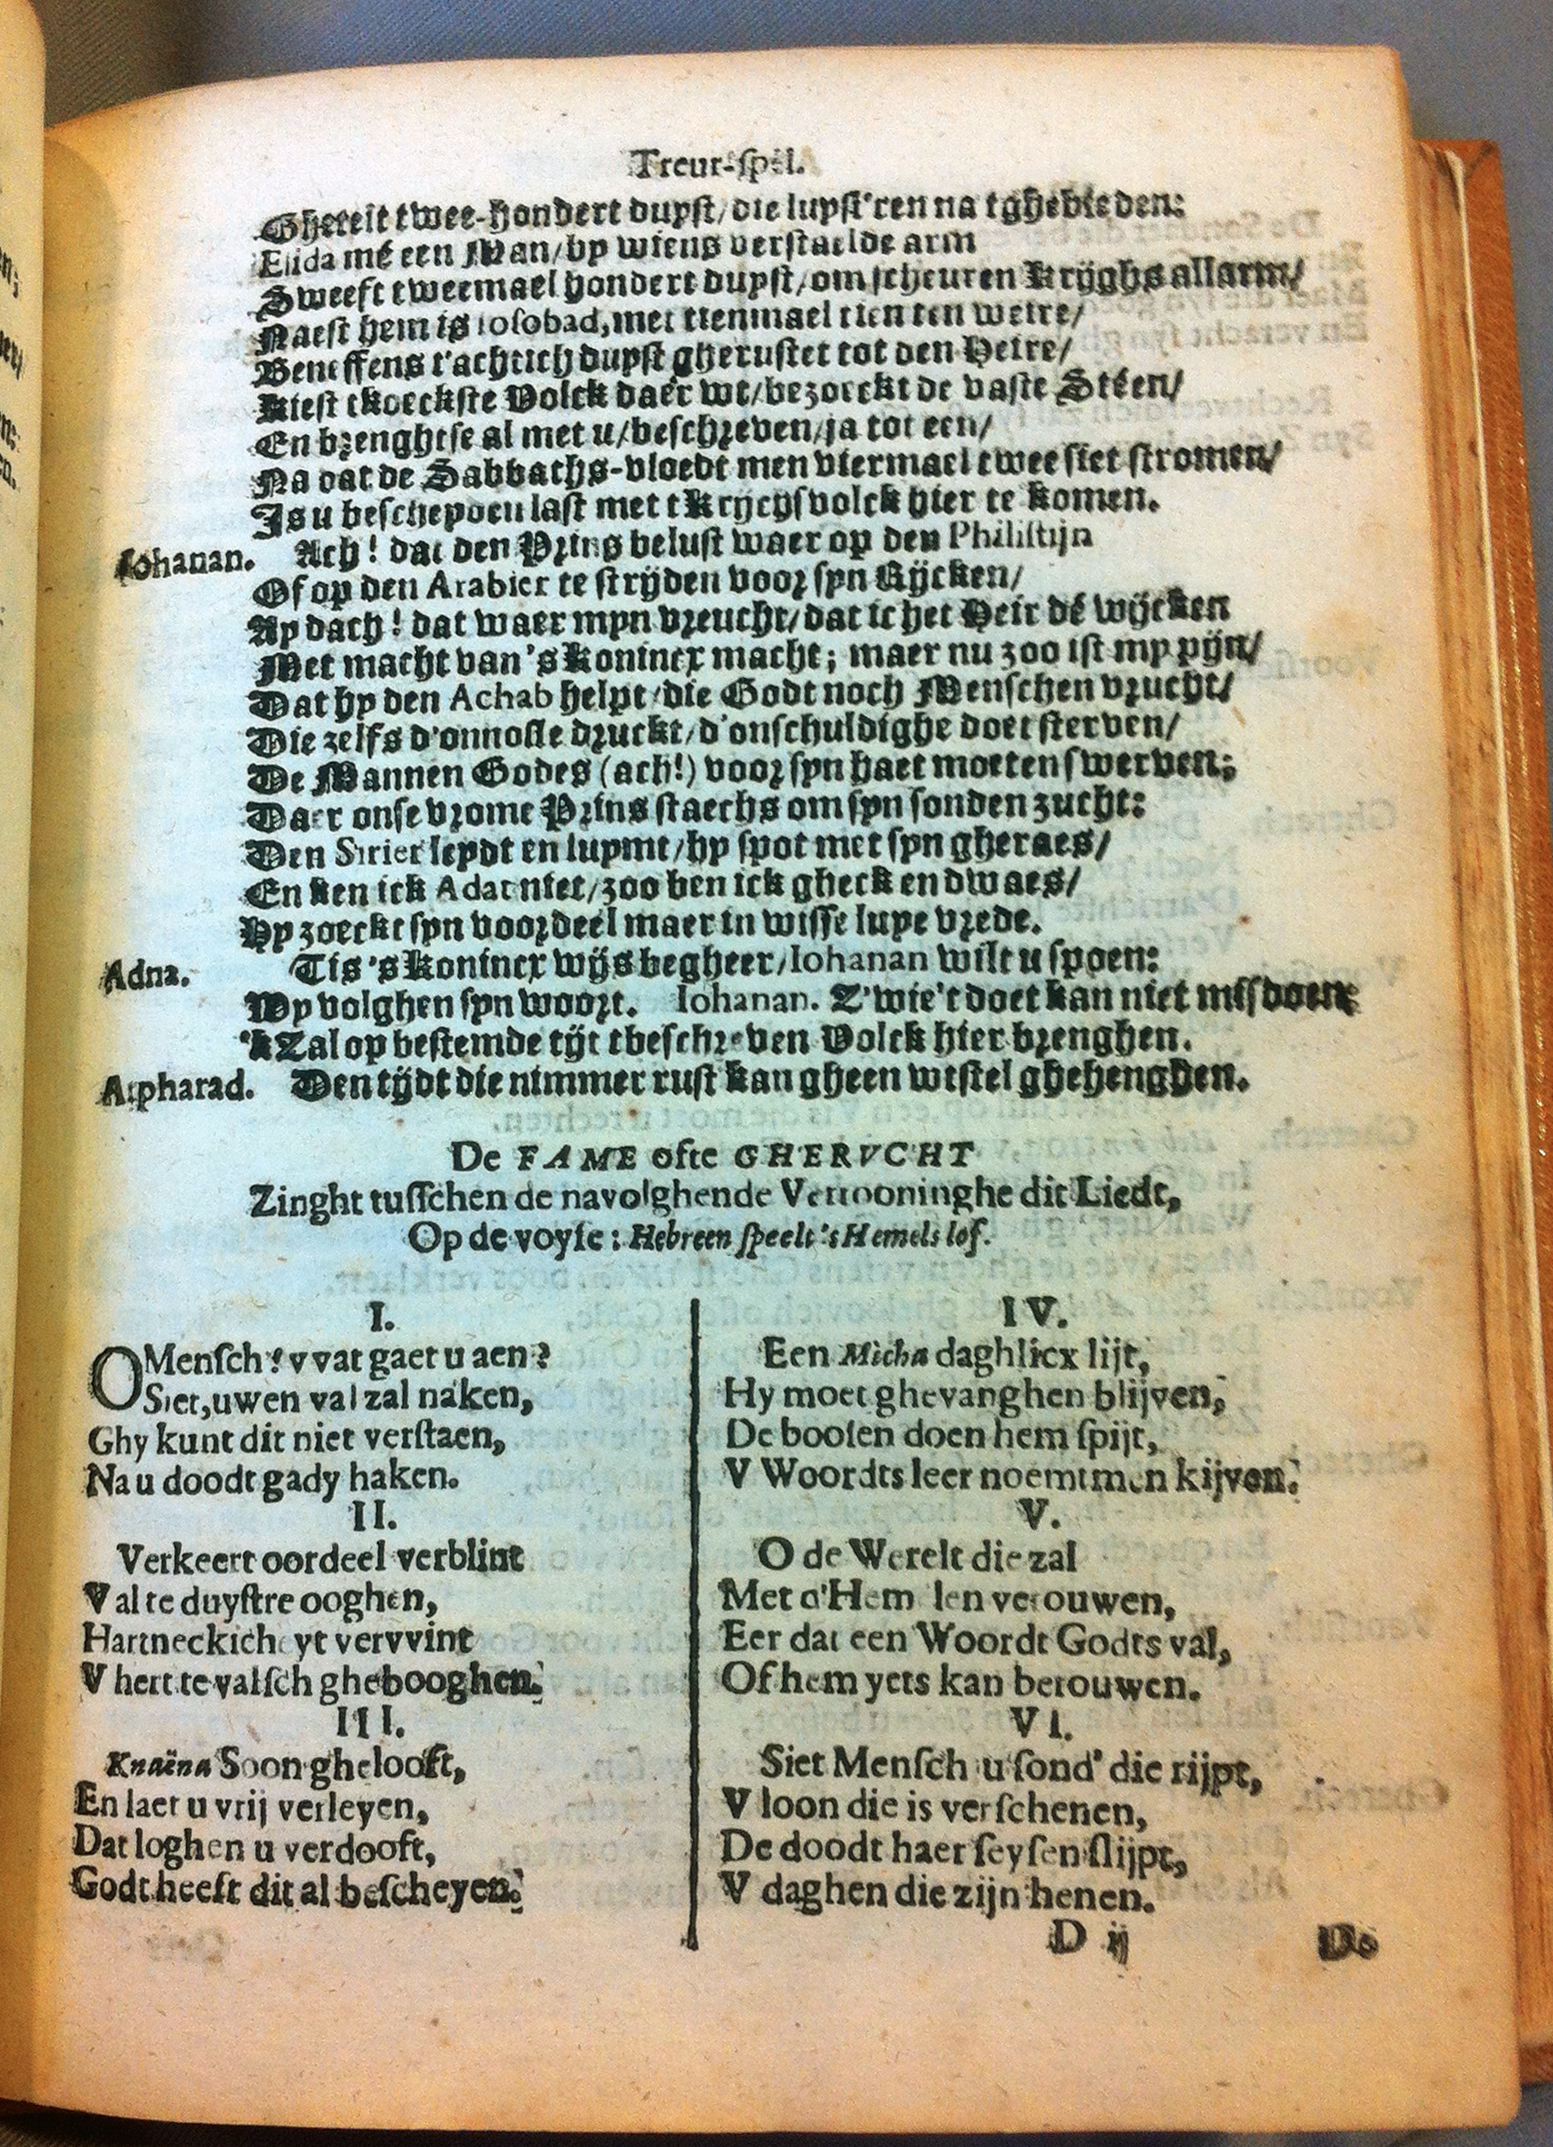 Treur-spel.
Ghereit twee-hondert duyst/die luyst'ren na tghebieden:
Elida mé een Man/op wiens verstaelde arm
Sweeft tweemael hondert duyst/om scheuren krijghs allarm/
Naest hem is Iosobad, met tienmael tien ten weire/
Beneffens t'achtich duyst gherustet tot den Heire/
Kiest tkoeckste Volck daer wt/bezoeckt de vaste Stéen/
En brenghtse al met u/beschreven/ja tot een/
Na dat de Sabbaths-vloedt men viermael twee siet stromen/
Is u beschepden last met tKrijchsvolck hier te komen.
Iohanan. Ach! dat den Prins belust waer op den Philistijn
Of op den Arabier te strijden voor syn Rijcken/
Ay dach! dat waer myn vreucht/dat ic het Heir dé wijcken
Met macht van 's Konincx macht; maer nu zoo ist my pijn/
Dat hy den Achab helpt/die Godt noch Menschen vrucht/
Die zelfs d'onnosle druckt/d'onschuldighe doet sterven/
De Mannen Godes (ach!) voor syn haet moeten swerven;
Daer onse vrome Prins staechs om syn sonden zucht:
Den Sirier leydt en luymt/hy spot met syn gheraes/
En ken ick Adat niet/zoo ben ick gheck en dwaes/
Hy zoeckt syn voordeel maer in wisse luye vrede.
Adna. Tis 's Konincx wijs begheer/Iohanan wilt u spoen:
Wy volghen syn woort. Iohanan. Z'wie't doet kan niet misdoen:
'k Zal op bestemde tijt tbeschreven Volck hier brenghen.
Atpharad. Den tijdt die nimmer rust kan gheen wistel ghehenghen.
De FAME ofte GHERVCHT
Zinght tusschen de navolghende Vertooninghe dit Liedt,
Op de voyse: Hebreen speelt 's Hemels lof.
I.
O Mensch! vvat gaet u aen?
Siet, uwen val zal naken,
Ghy kunt dit niet verstaen,
Na u doodt gady haken.
II.
Verkeert oordeel verblint
V al te duystre ooghen,
Hartneckicheyt vervvint
V hert te valsch ghebooghen.
III.
Knaëna Soon ghelooft,
En laet u vrij verleyen,
Dat loghen u verdooft,
Godt heeft dit al bescheyen.
IV.
Een Micha daghlicx lijt,
Hy moet ghevanghen blijven,
De boosen doen hem spijt,
V Woordts leer noemt men kijven.
V.
O de Werelt die zal
Met d'Hem len verouwen,
Eer dat een Woordt Godts val,
Of hem yets kan berouwen.
VI.
Siet Mensch u sond' die rijpt,
V loon die is verschenen,
De doodt haer seysen slijpt,
V daghen die zijn henen.
D ij
De